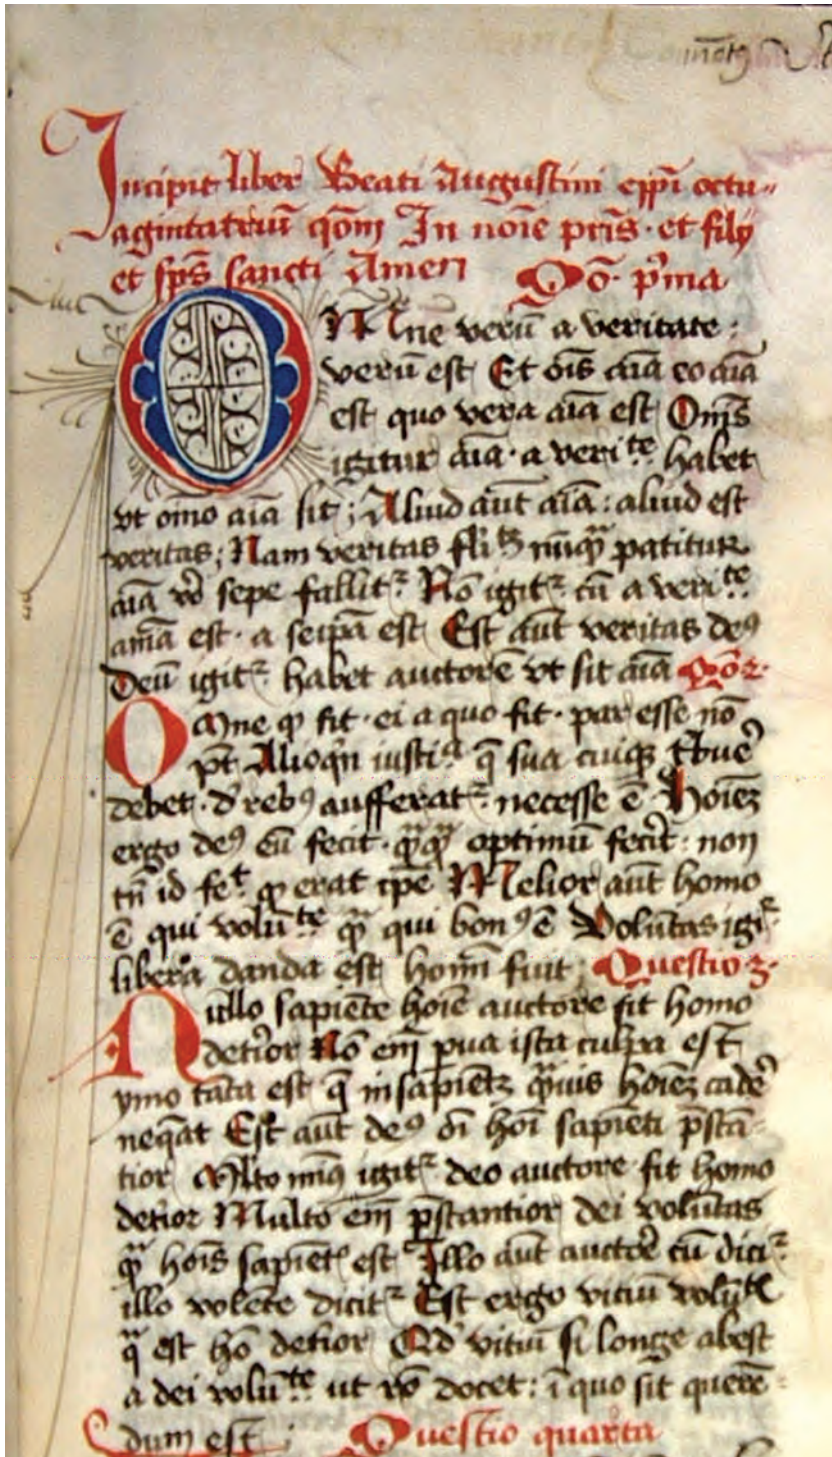 Incipit liber Beati Augustini epi octu
agintatriū qōm In noīe pris · et filij
et sp̄s sancti Amen Qō · p̄ma
OMne verū a veritate :
verū est Et oīs aīa eo aīa
est quo vera aīa est Om̄s
igitur aīa · a veri te habet
vt om̄o aīa sit ; Aliud aūt aīa : aliud est
veritas ; Nam veritas patitur
aīa sepe fallit Nō igit cū a veri te
am̄a est · a seip̄a est Est aūt veritas deꝰ
Deū igit habet auctorē vt sit aīa Qō 2 ·
OMne qͩ fit · ei a quo fit · par esse nō
pt̄ Alioqn iusti q̄ sua cuiqꝫ tbue
debet · d rebꝰ aufferat necesse ē Hoīeꝫ
ergo deꝰ cū fecit · optimū fecit : non
tn̄ id fe t qͩ erat ip̄e Melior aūt homo
ē qui volū te qui bonꝰ ē Voluntas igi
libera danda est homī fuit Questio 3 ·
Nullo sapiēte hoīe auctore fit homo
deterior Nō em̄ pua ista culpa est
ymo tāta est q̄ in sapiētē hoīeꝫ cade
neq̄at Est aūt deꝰ oī hoī sapiēti p̄stā
tior Mlto minꝰ igit deo auctore fit homo
deterior Multo em̄ p̄stantior dei volūtas
hoīs sapient est Illo aūt auctore cū dici
illo volēte dicit Est ergo vitiū volū te
q̄ est hō deterior Qd vitiū si longe abest
a dei volū te ut docet : ī quo sit querē
dum est ; Questio quarta